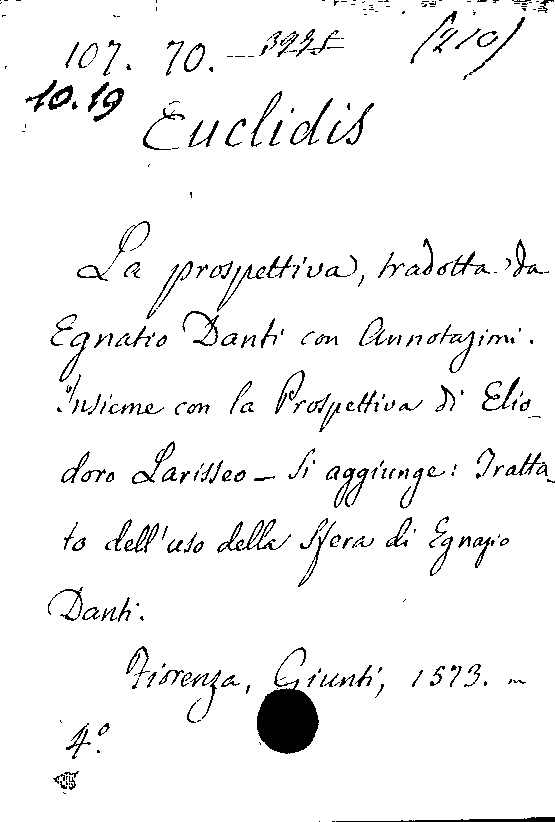 107. 70. — 3935 (210)
10.19
Euclidis
La prospettiva, tradotta da
Egnatio Danti con Annotazioni.
Insieme con la Prospettiva di Elio_
doro Larisseo — Si aggiunge: Tratta_
to dell'uso della Sfera di Egnazio
Danti.
Fiorenza, Giunti, 1573. in
4º